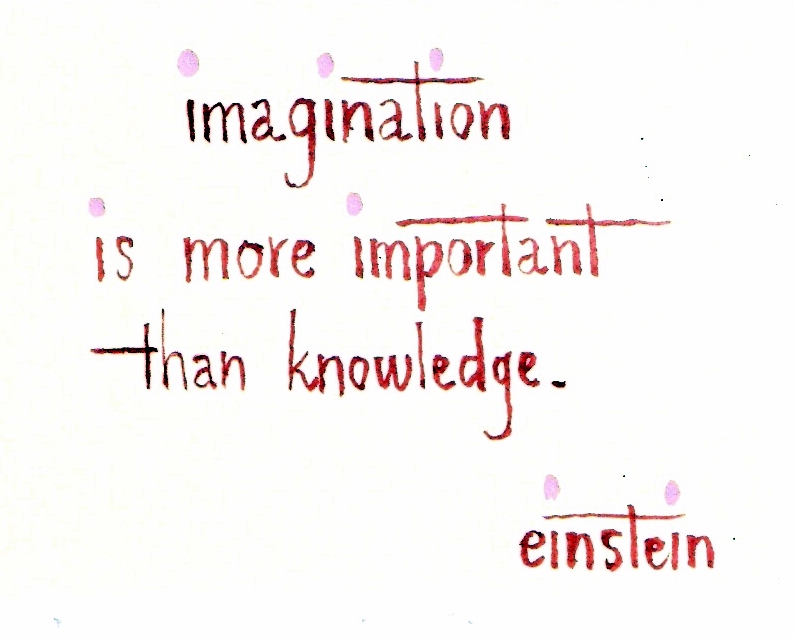 imagination
is more important
than knowledge.
einstein